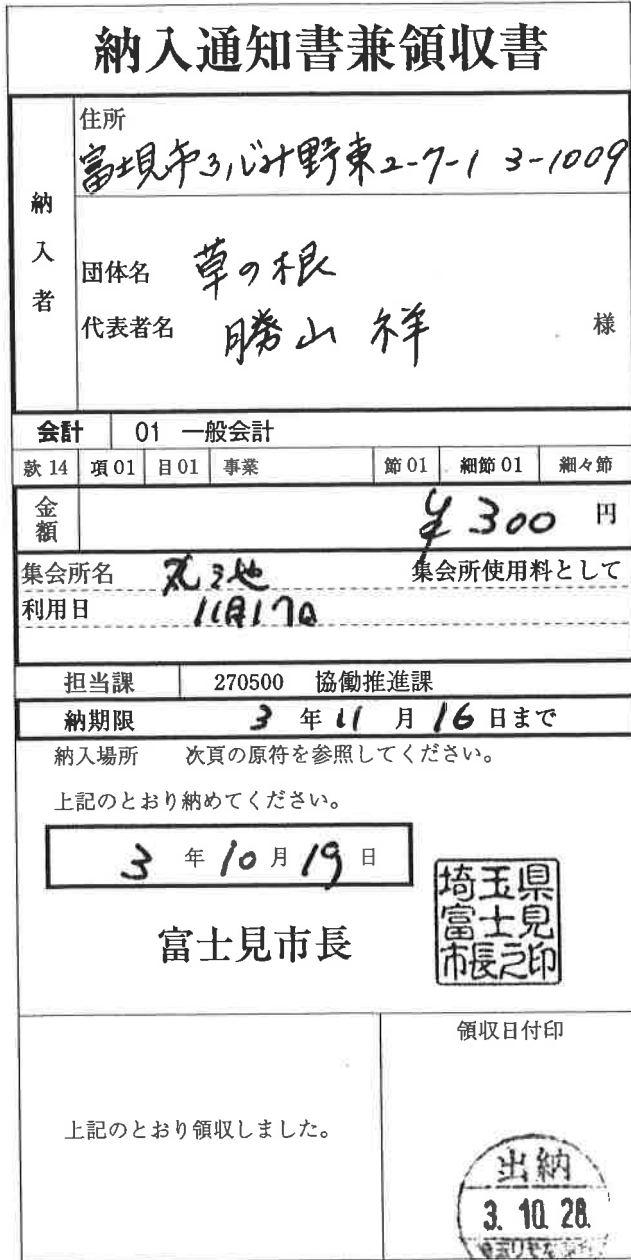 納入通知書兼領収書
納入者
住所
富士見市ふじみ野東2-7-1 3-1009
団体名 草の根
代表者名 勝山 祥 様
会計 01 一般会計
款 14 項 01 目 01 事業 節 01 細節 01 細々節
金額 ¥300 円
集会所名 集会所使用料として
利用日 11月17日
担当課 270500 協働推進課
納期限 3 年 11 月 16 日まで
納入場所 次頁の原符を参照してください。
上記のとおり納めてください。
3 年 10 月 19 日
富士見市長
埼玉県
富士見
市長之印
領収日付印
上記のとおり領収しました。
出納
3. 10. 28.